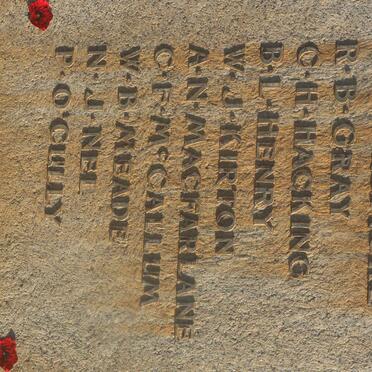 R·B·GRAY
C·H·HACKING
B·L·HENRY
W·J·KIRTON
A·N·MACFARLANE
C·F·McCALLUM
W·B·MEADE
N·J·NEIL
P·O'GULLY